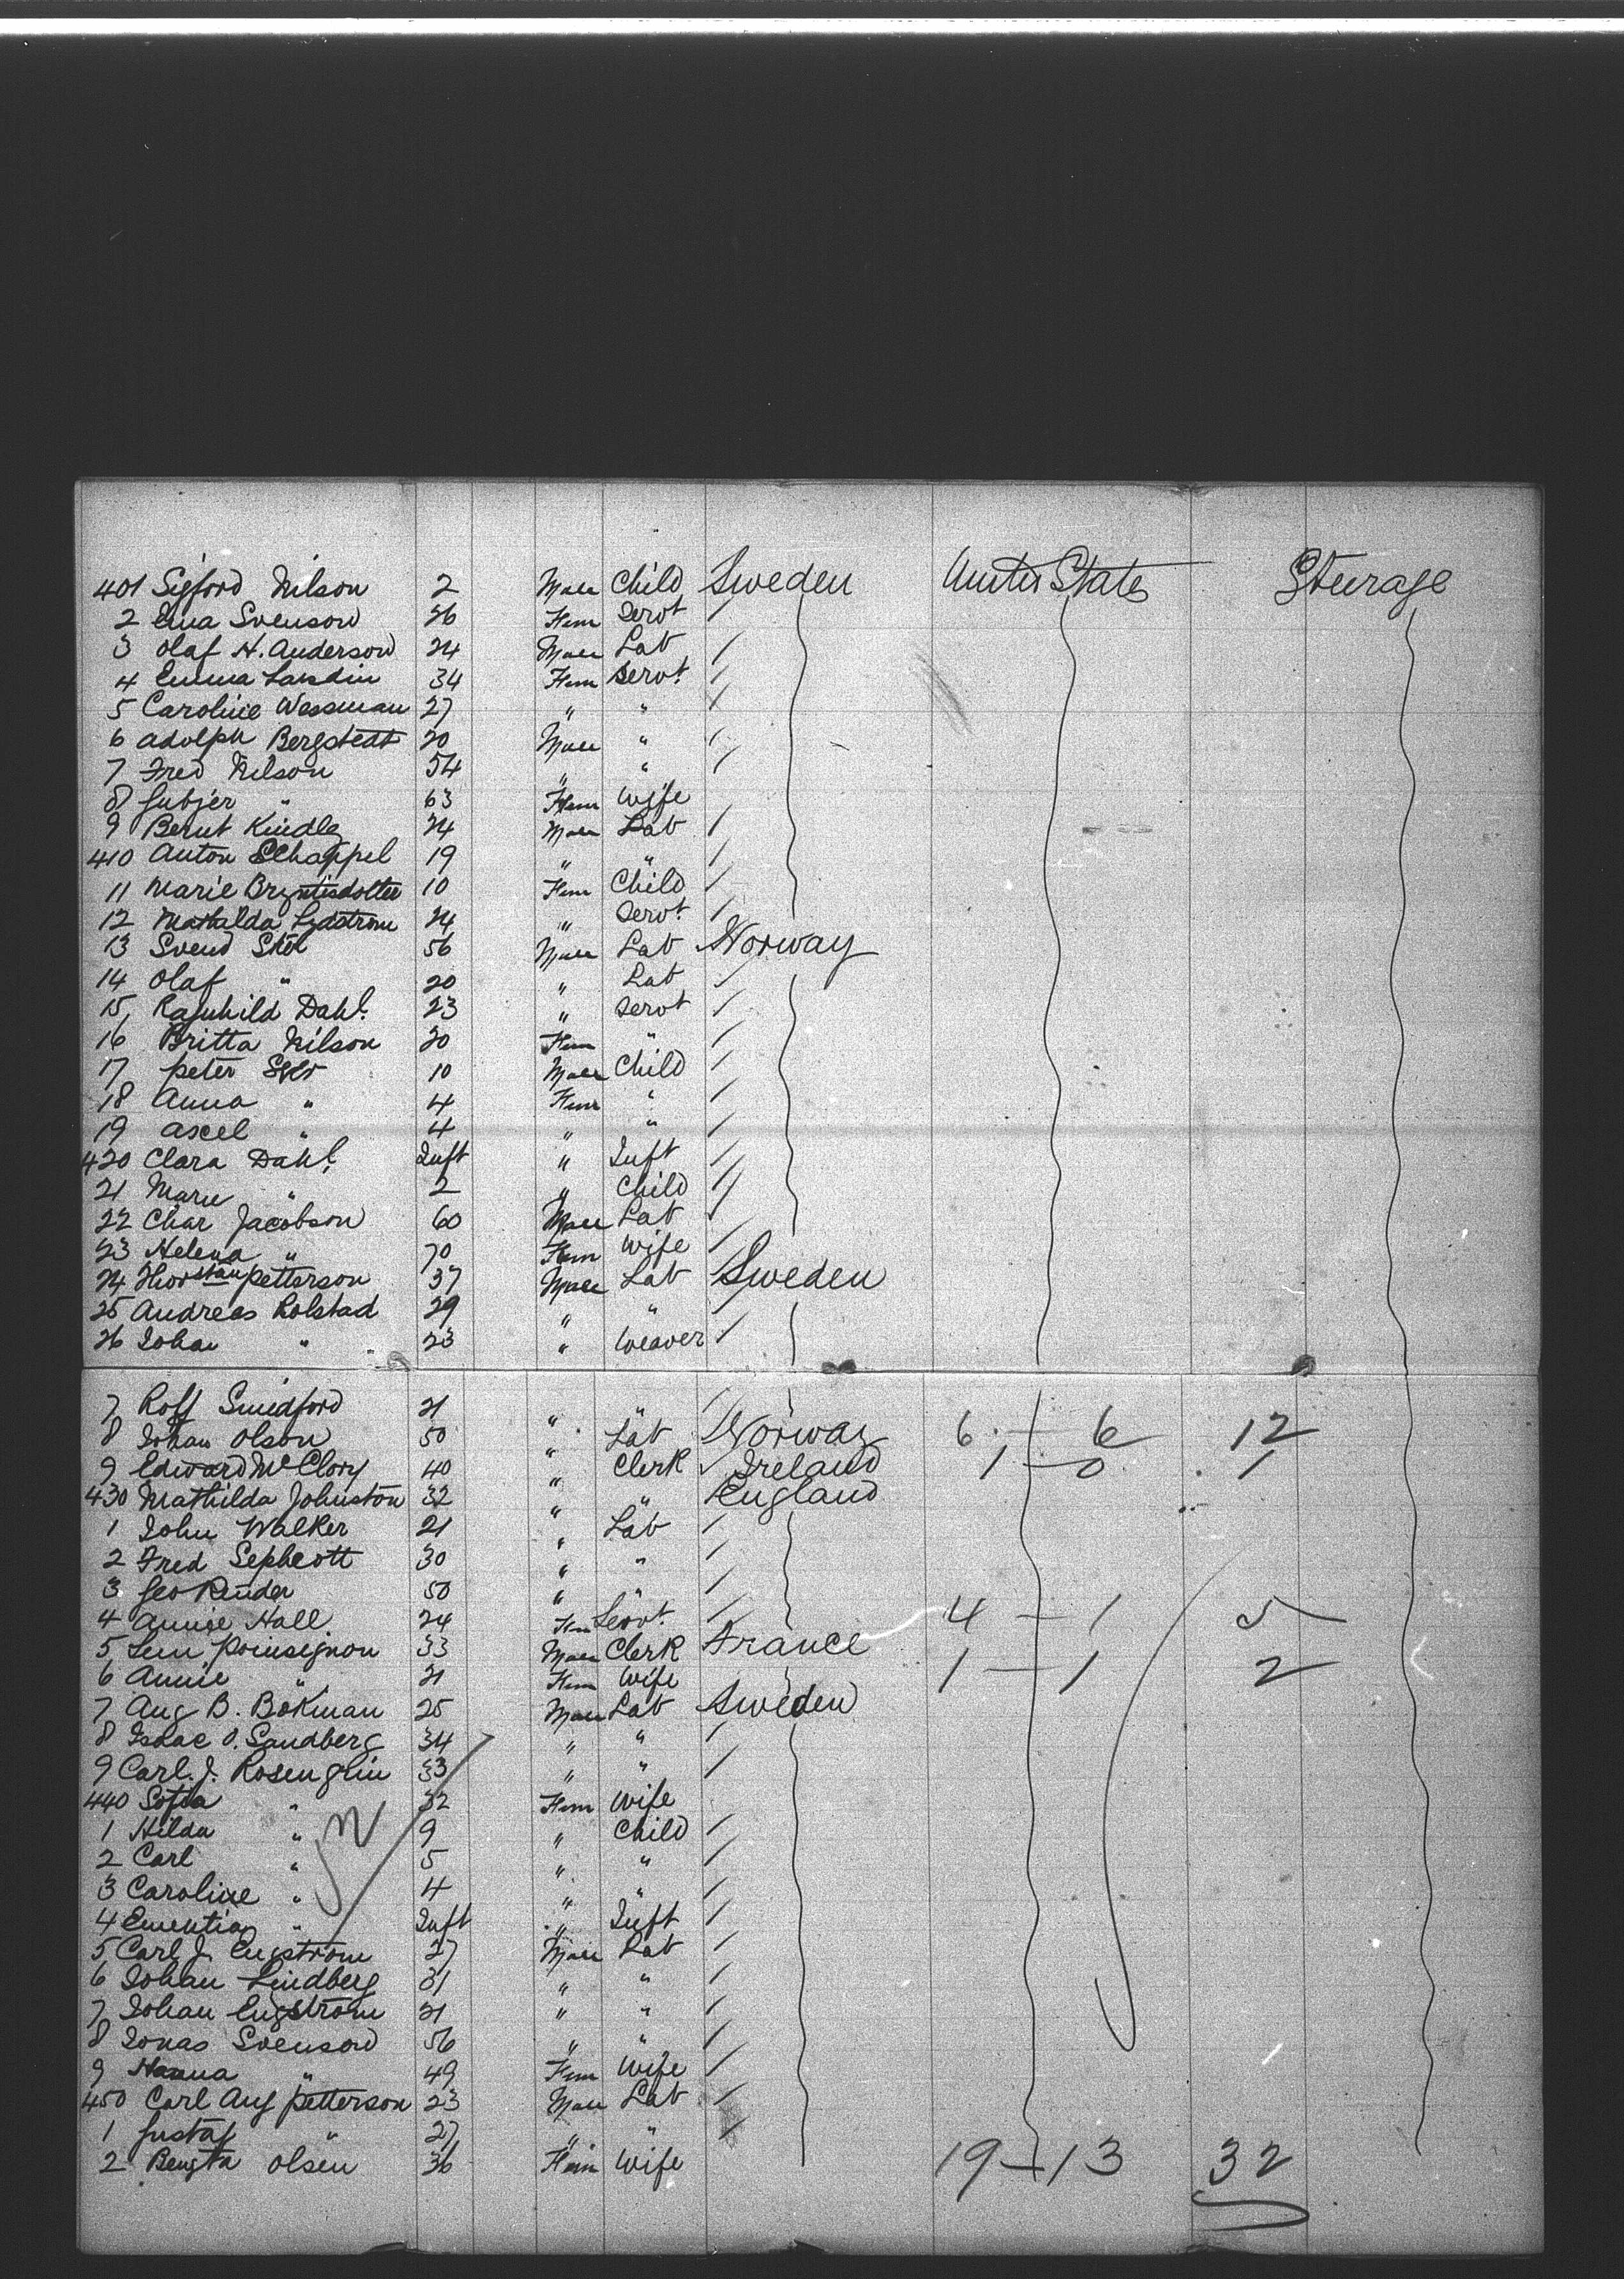 401 Sigford Nilson 2 Male Child Sweden United State Steurage
2 Ema Svenson 26 Fem Servt
3 Olaf H. Anderson 24 Male Lab
4 Emma Larsdin 34 Fem Servt
5 Caroline Wessman 27 " "
6 Adolph Bergstedt 20 Male "
7 Fred Nilson 54 " "
8 Gubjer " 63 Fem Wife
9 Bernt Kindlg 24 Male Lab
410 Anton Schappel 19 " "
11 Marie Bryntisdotter 10 Fem Child
12 Mathilda Lydstrom 24 " Servt
13 Svend 56 Male Lab Norway
14 Olaf " 20 " Lab
15 Ragnhild Dahl 23 " Servt
16 Britta Nilson 20 Fem "
17 Peter 10 Male Child
18 Anna " 4 Fem "
19 Ascel " 4 " "
420 Clara Dahl Inft " Inft
21 Marie " 2 " Child
22 Char Jacobson 60 Male Lab
23 Helena " 70 Fem Wife
24 Thorstan Petterson 37 Male Lab Sweden
25 Andreas Rolstad 29 " "
26 Johan " 23 " Weaver
7 Rolf Smedford 21 " "
8 Johan Olson 50 " Lab Norway 6 - 6 12
9 Edward McClory 40 " Clerk Ireland 1 - 0 1
430 Mathilda Johnston 32 " " England
1 John Walker 21 " Lab
2 Fred Sephcott 30 " "
3 Geo Rinder 50 " "
4 Annie Hall 24 Fem Servt 4 - 1 5
5 Poinsignon 33 Male Clerk France
6 Annie " 21 Fem Wife 1 - 1 2
7 Aug B. Bökman 25 Male Lab Sweden
8 Isaac O. Sandberg 34 " "
9 Carl J. Rosenglin 33 " "
440 Sofia " 32 Fem Wife
1 Hilda " 9 " Child
2 Carl " 5 " "
3 Caroline " 4 " "
4 Ementia " Inft " Inft
5 Carl J. Engstrom 27 Male Lab
6 Johan Lindberg 31 " "
7 Johan Engstrom 21 " "
8 Jonas Svenson 56 " "
9 Hanna " 49 Fem Wife
450 Carl Aug Petterson 23 Male Lab
1 Gustaf " 27 " "
2 Bengta Olsen 36 Fem Wife 19 - 13 32